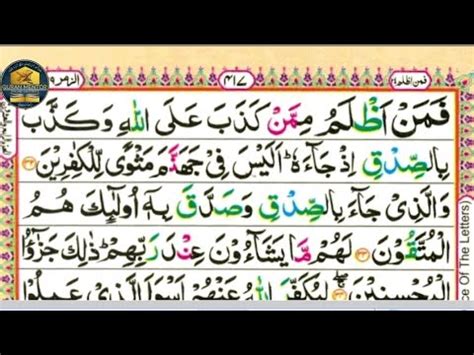 فمن اظلم ۲۴ ۴۱۷ الزمر ۳۹
فَمَنْ اَظْلَمُ مِمَّنْ كَذَبَ عَلَى اللّٰهِ وَكَذَّبَ
بِالصِّدْقِ اِذْ جَآءَهٗ ؕ اَلَيْسَ فِيْ جَهَنَّمَ مَثْوًى لِّلْكٰفِرِيْنَ ۝۳۲
وَالَّذِيْ جَآءَ بِالصِّدْقِ وَصَدَّقَ بِهٖۤ اُولٰٓئِكَ هُمُ
الْمُتَّقُوْنَ ۝۳۳ لَهُمْ مَّا يَشَآءُوْنَ عِنْدَ رَبِّهِمْ ؕ ذٰلِكَ جَزٰٓؤُا
الْمُحْسِنِيْنَ ۝۳۴ لِيُكَفِّرَ اللّٰهُ عَنْهُمْ اَسْوَاَ الَّذِيْ عَمِلُوْا
ce Of The Letters)